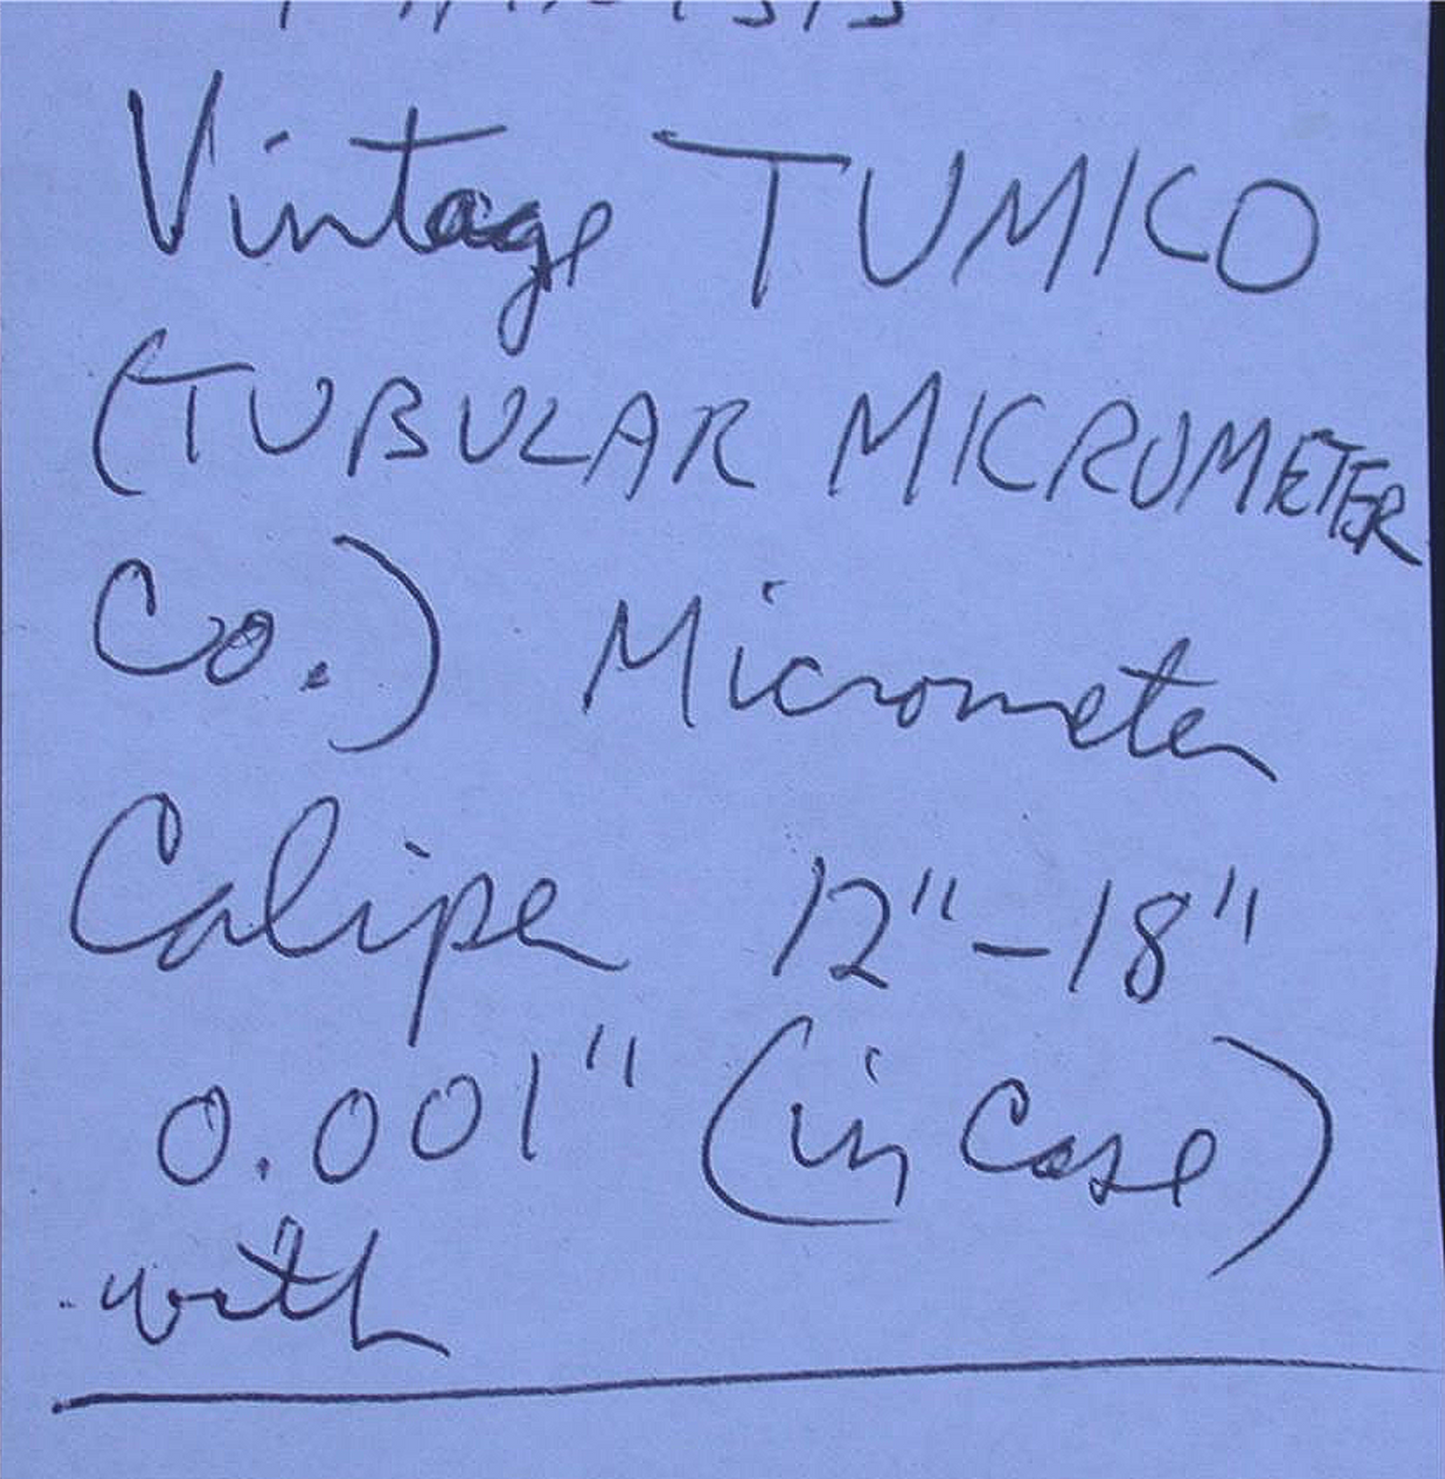 Vintage TUMICO
(TUBULAR MICROMETER
Co.) Micrometer
Caliper 12"-18"
0.001" (in Case)
with